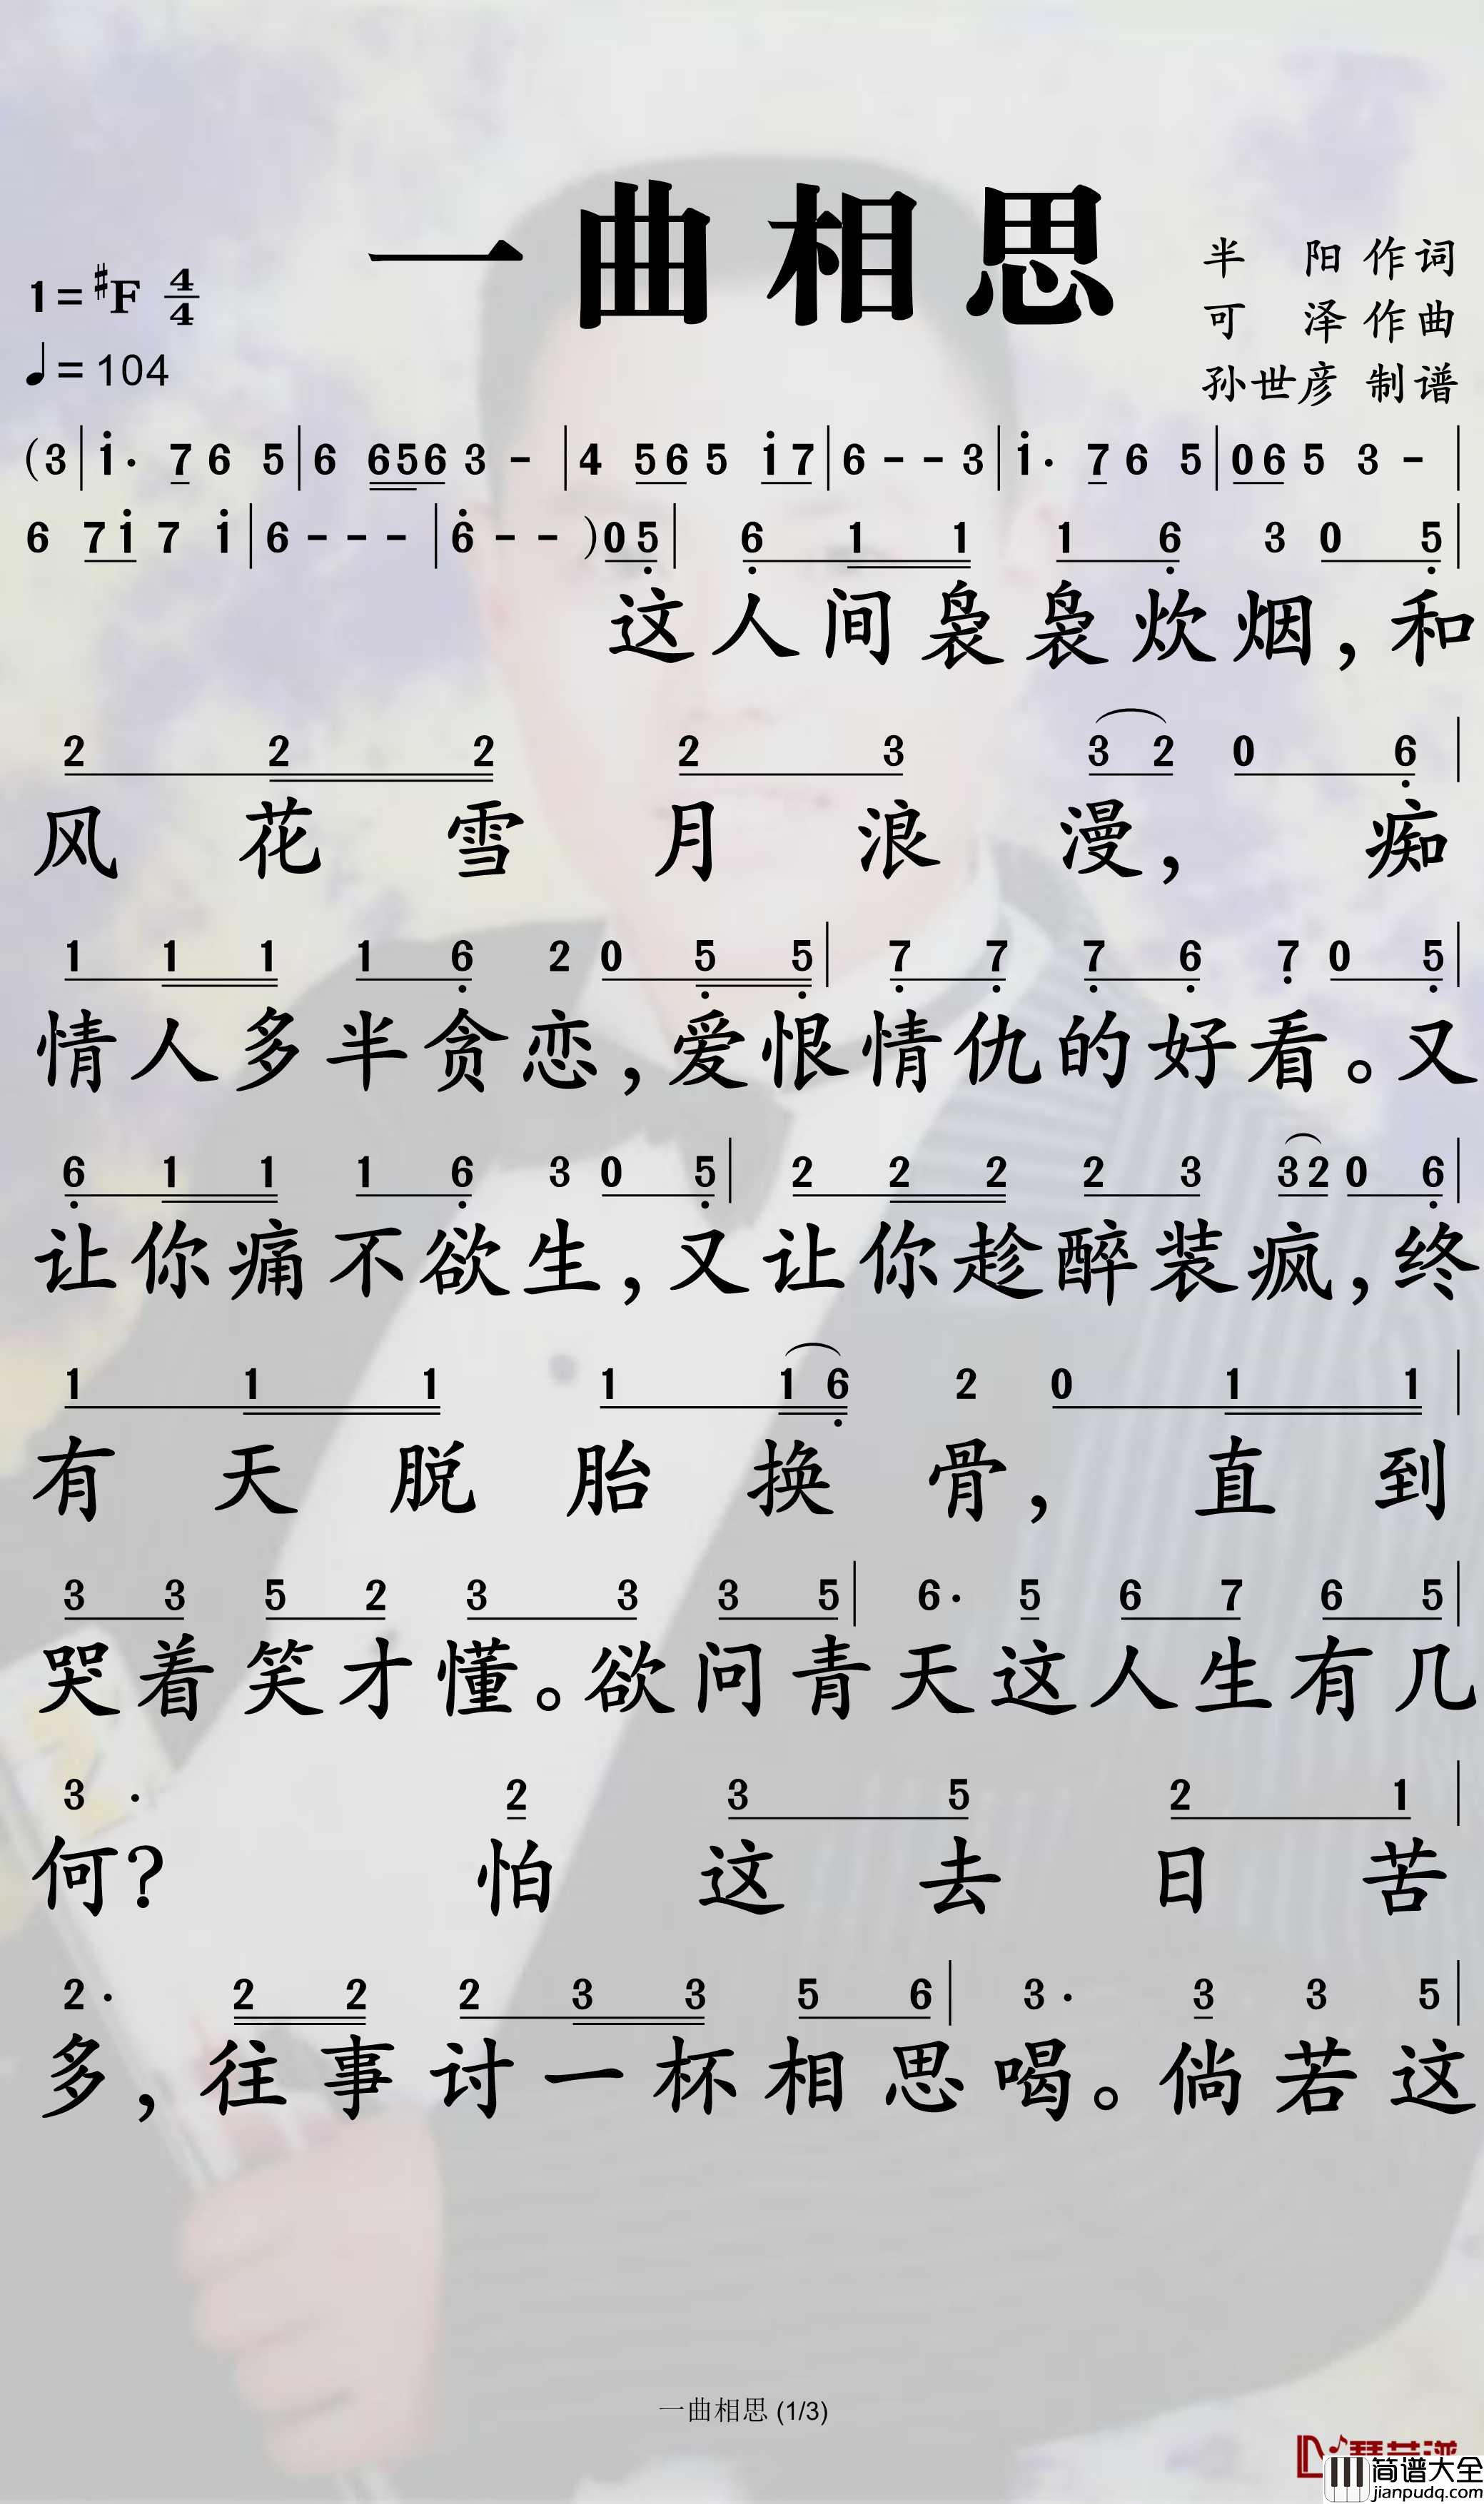 一曲相思
1=#F 4/4
♩=104
半 阳 作词
可 泽 作曲
孙世彦 制谱
(3 | i· 7 6 5 | 6 656 3 - | 4 56 5 i7 | 6 - - 3 | i· 7 6 5 | 06 5 3 - |
6 7i 7 i | 6 - - - | 6̇ - - ) 0 5̣ | 6̣ 1 1 1 6̣ 3 0 5̣ |
这人间袅袅炊烟,和
2 2 2 2 3 3 2 0 6̣ |
风花雪月浪漫,痴
1 1 1 1 6̣ 2 0 5̣ 5̣ | 7̣ 7̣ 7̣ 6̣ 7̣ 0 5̣ |
情人多半贪恋,爱恨情仇的好看。又
6̣ 1 1 1 6̣ 3 0 5̣ | 2 2 2 2 3 32 0 6̣ |
让你痛不欲生,又让你趁醉装疯,终
1 1 1 1 1 6̣ 2 0 1 1 |
有天脱胎换骨,直到
3 3 5 2 3 3 3 5 | 6· 5 6 7 6 5 |
哭着笑才懂。欲问青天这人生有几
3 · 2 3 5 2 1 |
何?怕这去日苦
2· 2 2 2 3 3 5 6 | 3· 3 3 5 |
多,往事讨一杯相思喝。倘若这
一曲相思 (1/3)
简谱大全
jianpudq.com